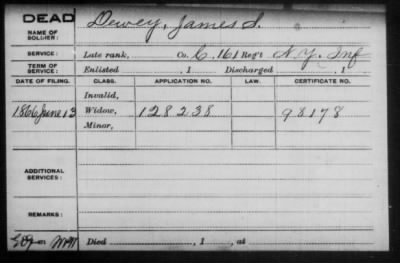 DEAD
Dewey, James S.
NAME OF SOLDIER:
SERVICE: Late rank, Co. C, 161 Reg't N.Y. Inf
TERM OF SERVICE: Enlisted , 1 Discharged , 1
DATE OF FILING. CLASS. APPLICATION NO. LAW. CERTIFICATE NO.
Invalid,
1866 June 13 Widow, 128238 98178
Minor,
ADDITIONAL SERVICES:
REMARKS:
Died , 1 , at